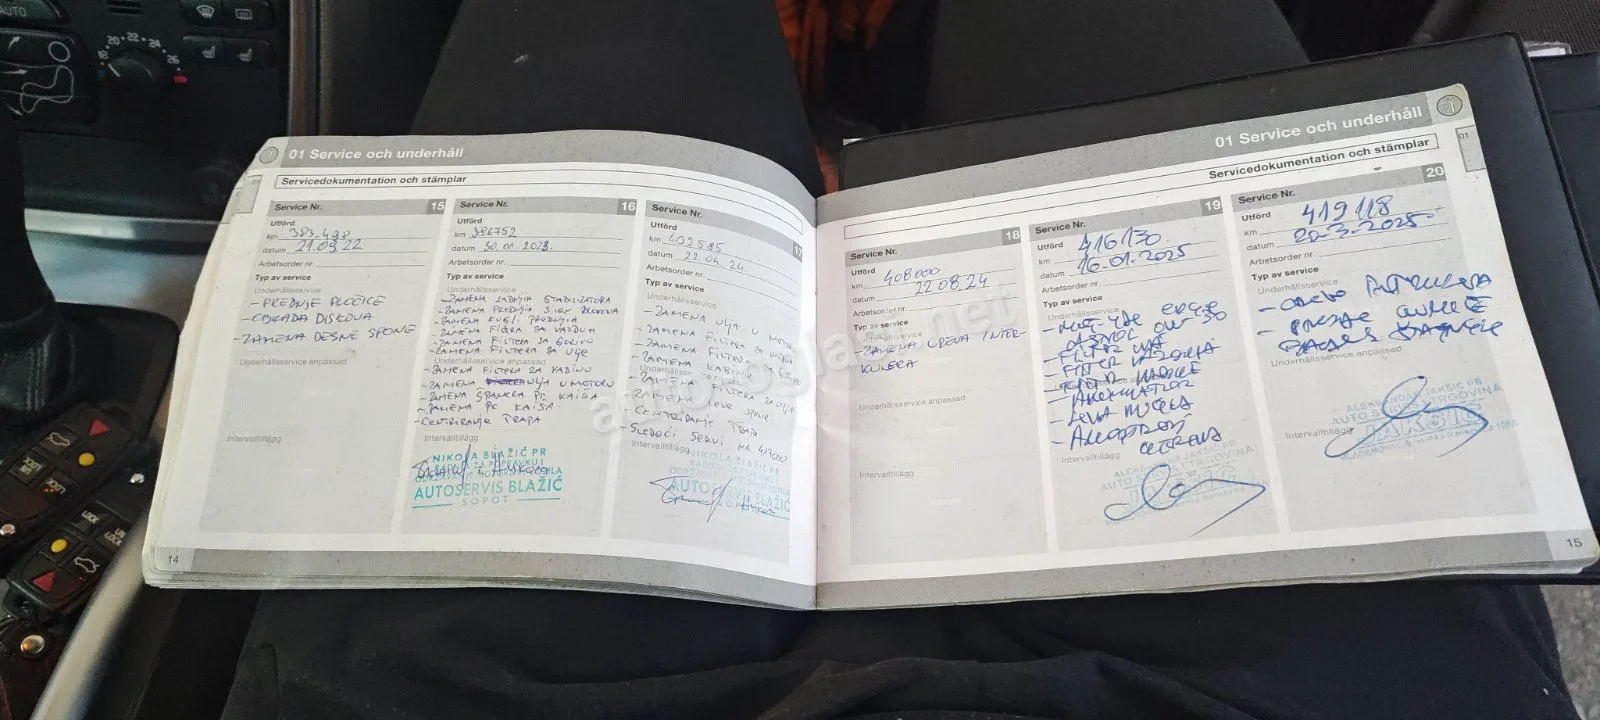 AUTO
18 20 22 24 26
LOCK
UN
LOCK
01 Service och underhåll
01
Servicedokumentation och stämplar
Service Nr. 15
Utförd
km 383.490
datum 21.09.22
Arbetsorder nr.
Typ av service
Underhållsservice
- PREDNJE PLOČICE
- OBRADA DISKOVA
- ZAMENA DESNE SPONE
Underhållsservice anpassad
Intervalltillägg
Service Nr. 16
Utförd
km 386752
datum 30.01.2023.
Arbetsorder nr.
Typ av service
Underhållsservice
- ZAMENA ZADNJIH STABILIZATORA
- ZAMENA PREDNJIH SILEN BLOKOVA
- ZAMENA KUGLI PREDNJIH
- ZAMENA FILTERA ZA VAZDUH
- ZAMENA FILTERA ZA GORIVO
- ZAMENA FILTERA ZA ULJE
Underhållsservice anpassad
- ZAMENA FILTERA ZA KABINU
- ZAMENA ULJA U MOTORU
- ZAMENA ŠPANERA PK KAIŠA
- ZAMENA PK KAIŠA
- CENTRIRANJE TRAPA
Intervalltillägg
NIKOLA BLAŽIĆ PR
AUTOSERVIS BLAŽIĆ
SOPOT
Service Nr. 17
Utförd
km 402585
datum 22.04.24
Arbetsorder nr.
Typ av service
Underhållsservice
- ZAMENA ULJA U MOTORU
- ZAMENA FILTERA ZA
- ZAMENA FILTERA ZA
- ZAMENA KABINU
Underhållsservice anpassad
- ZAMENA FILTERA ZA ULJE
- ZAMENA LEVE SPONE
- CENTRIRANJE TRAPA
- SLEDEĆI SERVIS NA 417000
Intervalltillägg
NIKOLA BLAŽIĆ PR
AUTOSERVIS BLAŽIĆ
SOPOT
14
01 Service och underhåll
01
Servicedokumentation och stämplar
Service Nr. 18
Utförd
km 408000
datum 22.08.24
Arbetsorder nr.
Typ av service
Underhållsservice
- ZAMENA CREVA INTER-
KULERA
Underhållsservice anpassad
Intervalltillägg
Service Nr. 19
Utförd
km 416130
datum 16.01.2025
Arbetsorder nr.
Typ av service
- FILTER
- FILTER
- AKUMULATOR
Intervalltillägg
ALEKSANDAR JAKŠIĆ PR
Service Nr. 20
Utförd
km 419118
datum 20-3.2025
Arbetsorder nr.
Typ av service
Underhållsservice
- CREVO INTERKULERA
Underhållsservice anpassad
Intervalltillägg
ALEKSANDAR JAKŠIĆ PR
AUTO SERVIS I TRGOVINA
JAKŠIĆ
15